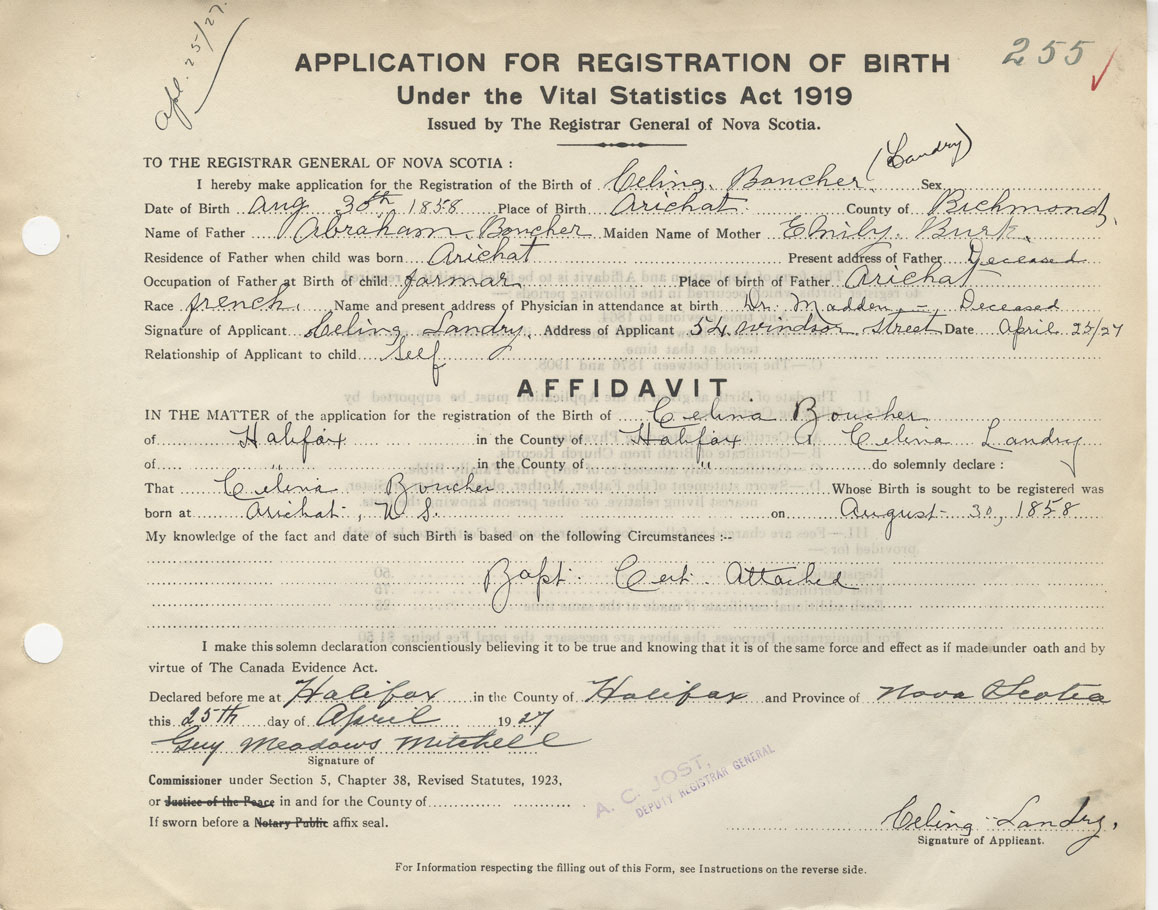 Apl. 25/27.
255
APPLICATION FOR REGISTRATION OF BIRTH
Under the Vital Statistics Act 1919
Issued by The Registrar General of Nova Scotia.
TO THE REGISTRAR GENERAL OF NOVA SCOTIA :
(Landry)
I hereby make application for the Registration of the Birth of Celina Boucher Sex
Date of Birth Aug 30th 1858 Place of Birth Arichat County of Richmond
Name of Father Abraham Boucher Maiden Name of Mother Emily Burk.
Residence of Father when child was born Arichat Present address of Father Deceased
Occupation of Father at Birth of child farmar Place of birth of Father Arichat
Race french. Name and present address of Physician in attendance at birth Dr. Madden — Deceased
Signature of Applicant Celina Landry. Address of Applicant 54 Windsor Street Date April 25/27
Relationship of Applicant to child Self
AFFIDAVIT
IN THE MATTER of the application for the registration of the Birth of Celina Boucher
of Halifax in the County of Halifax I, Celina Landry
of " in the County of " do solemnly declare :
That Celina Boucher Whose Birth is sought to be registered was
born at Arichat, N.S. on August 30, 1858
My knowledge of the fact and date of such Birth is based on the following Circumstances :--
Bapt. Cert. Attached
I make this solemn declaration conscientiously believing it to be true and knowing that it is of the same force and effect as if made under oath and by
virtue of The Canada Evidence Act.
Declared before me at Halifax in the County of Halifax and Province of Nova Scotia
this 25th day of April 1927
Guy Meadows Mitchell
Signature of
Commissioner under Section 5, Chapter 38, Revised Statutes, 1923,
or Justice of the Peace in and for the County of
If sworn before a Notary Public affix seal.
A. C. JOST,
DEPUTY REGISTRAR GENERAL
Celina Landry.
Signature of Applicant.
For Information respecting the filling out of this Form, see Instructions on the reverse side.